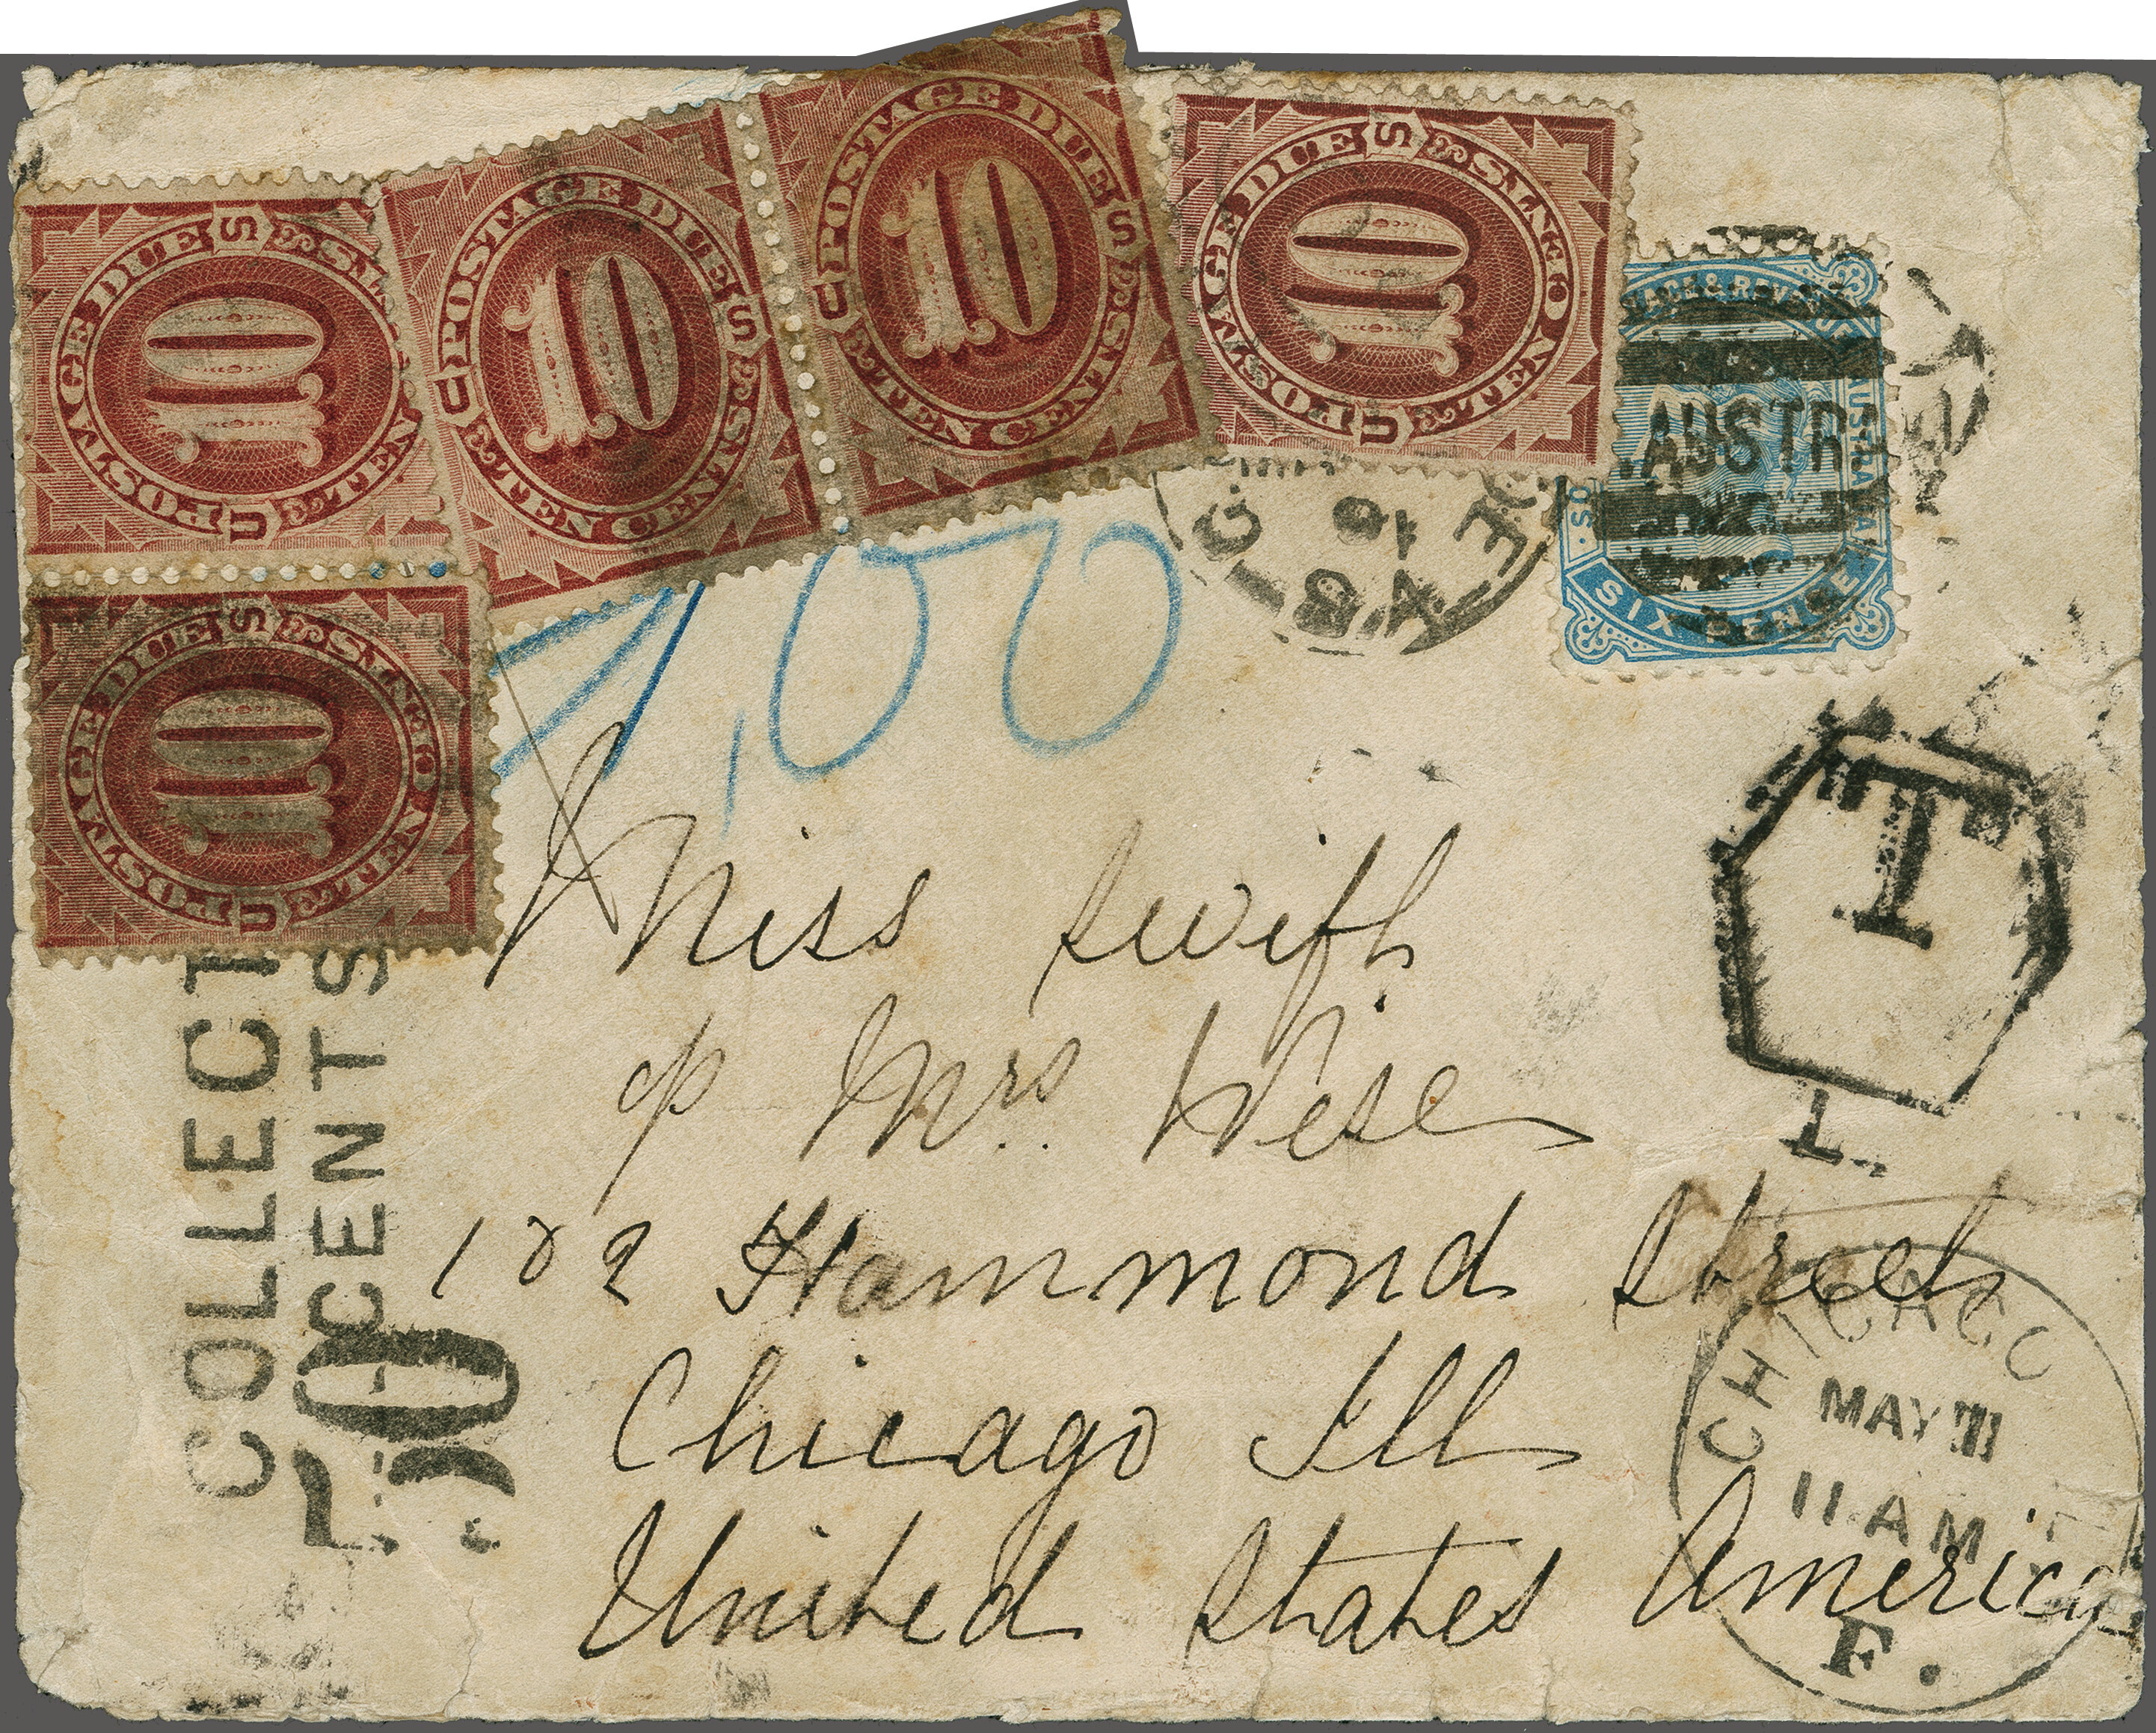 POSTAGE DUE
10
TEN CENTS
U S
POSTAGE DUE
10
TEN CENTS
U S
POSTAGE DUE
10
TEN CENTS
U S
POSTAGE DUE
10
TEN CENTS
U S
POSTAGE DUE
10
TEN CENTS
U S
AUSTRA
SIX PENCE
1,00
T
L
Miss Swift
c/o Mrs. Wise
182 Hammond Street
Chicago Ill
United States America
COLLECT
50 CENTS
CHICAGO
MAY 11
11 AM
F.